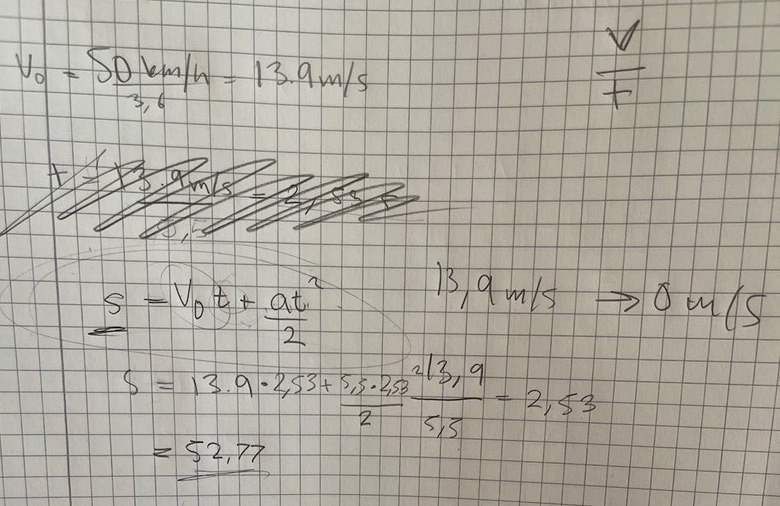 V₀ = 50 km/h / 3,6 = 13.9 m/s
V
T
t = 13.9 m/s / 5,5 = 2,53 s
s = V₀t + at² / 2
13,9 m/s → 0 m/s
s = 13.9 · 2,53 + 5,5 · 2,53² / 2
13,9 / 5,5 = 2,53
= 52,77